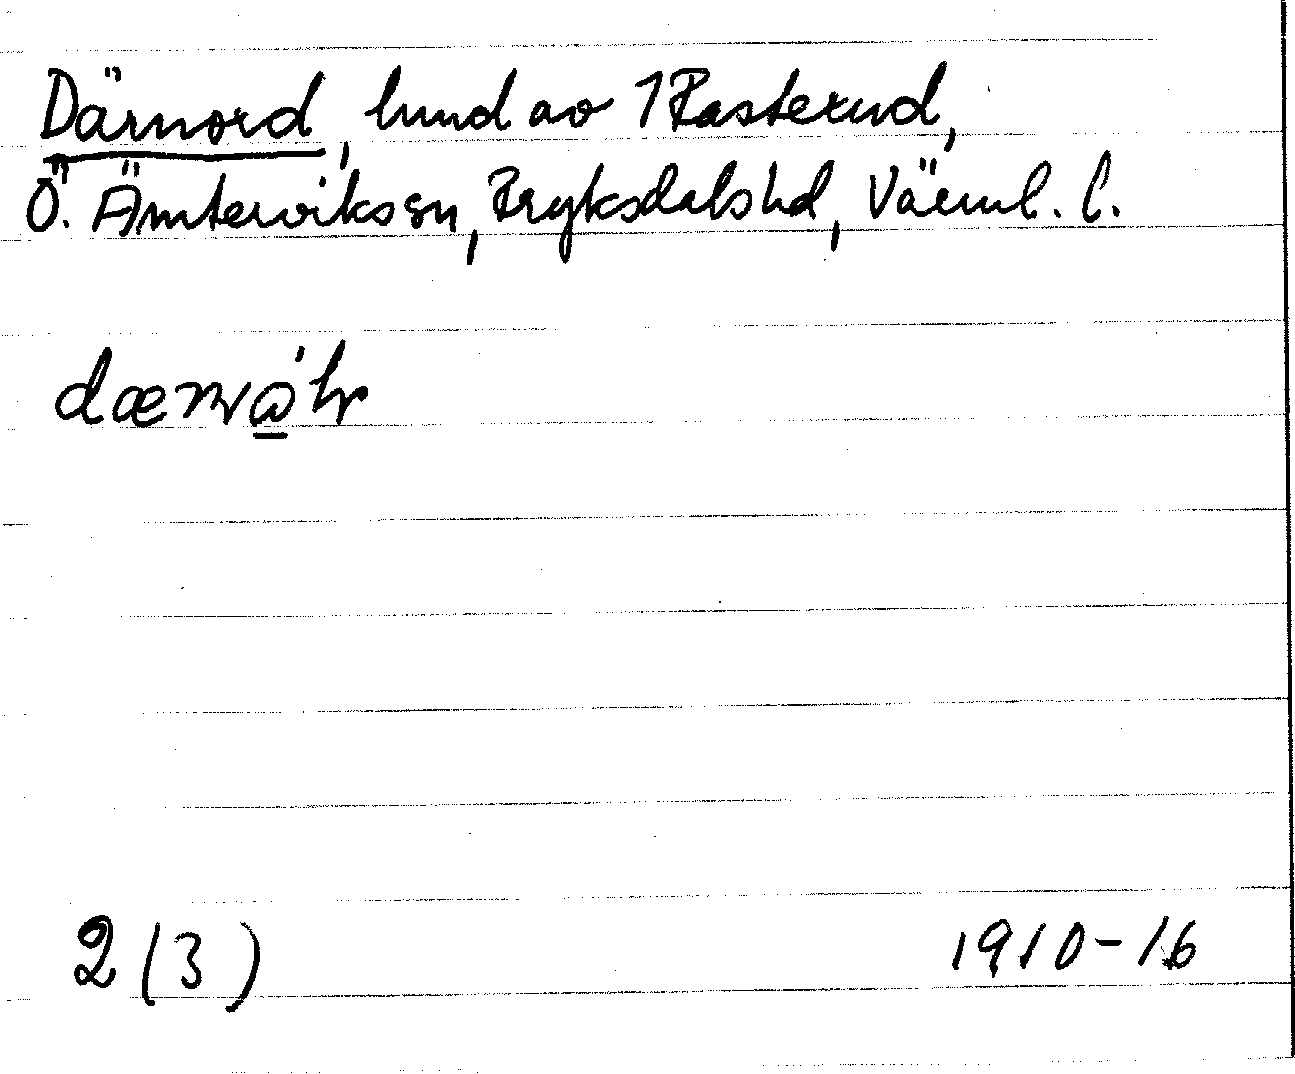 Därnord, hmd av 1 Rasterud,
Ö. Ämterviks sn, Fryksdals hd, Värml. l.
2 (3)
1910-16